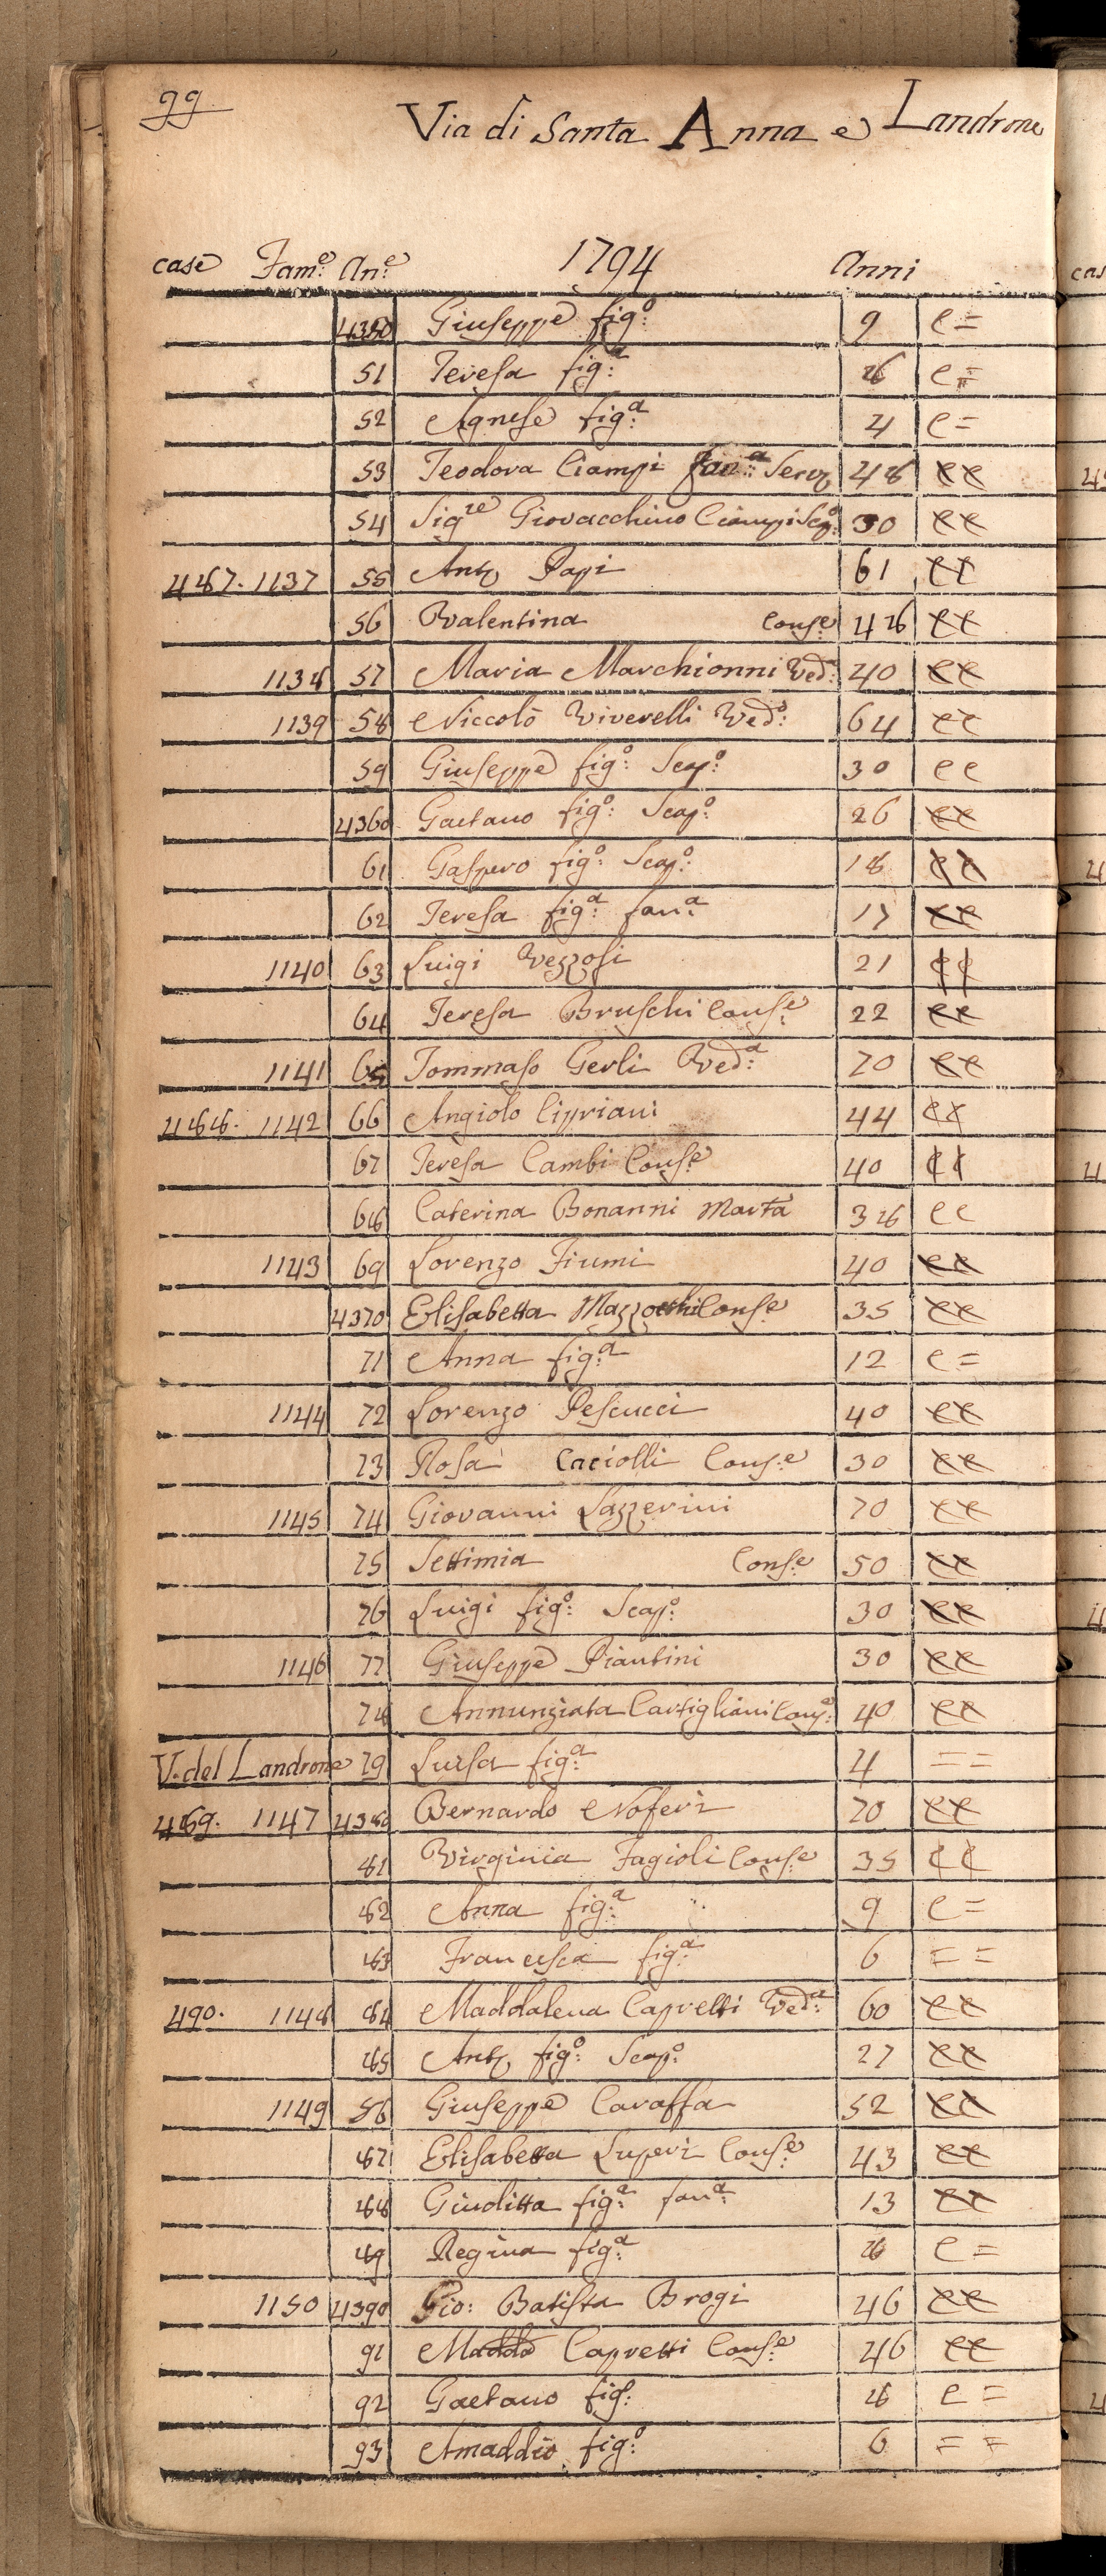 99
Via di Santa Anna e Landrone
case Fam:e An:e 1794 Anni
4350 Giuseppe fig:o 9 e =
51 Teresa fig:a 8 e =
52 Agnese fig:a 4 e =
53 Teodora Ciampi fan:a Serv. 48 ee
54 Sig.re Giovacchino Ciampi Scap:o 30 ee
487. 1137 55 Anto Papi 61 ee
56 Valentina Cons:e 48 ee
1138 57 Maria Marchionni Ved:a 40 ee
1139 58 Niccolò Viverelli Ved:o 64 ee
59 Giuseppe fig:o Scap:o 30 ee
4360 Gaetano fig:o Scap:o 26 ee
61 Gaspero fig:o Scap:o 18 ee
62 Teresa fig:a fan:a 17 ee
1140 63 Luigi Vezzosi 21 ee
64 Teresa Bruschi Cons:e 22 ee
1141 65 Tommaso Gerli Ved:a 70 ee
488. 1142 66 Angiolo Cipriani 44 ee
67 Teresa Cambi Cons:e 40 ee
68 Caterina Bonanni Marta 38 ee
1143 69 Lorenzo Fiumi 40 ee
4370 Elisabetta Mazzocchi Cons:e 35 ee
71 Anna fig:a 12 e =
1144 72 Lorenzo Pescucci 40 ee
73 Rosa Caciolli Cons:e 30 ee
1145 74 Giovanni Lazzerini 70 ee
75 Settimia Cons:e 50 ee
76 Luigi fig:o Scap:o 30 ee
1146 77 Giuseppe Piantini 30 ee
78 Annunziata Castigliani Cons:e 40 ee
V. del Landrone 79 Luisa fig:a 4 = =
489. 1147 4380 Bernardo Noferi 70 ee
81 Virginia Fagioli Cons:e 35 ee
82 Anna fig:a 9 e =
83 Francesca fig:a 6 = =
490. 1148 84 Maddalena Capretti Ved:a 60 ee
85 Anto fig:o Scap:o 27 ee
1149 86 Giuseppe Caraffa 52 ee
87 Elisabetta Luperi Cons:e 43 ee
88 Giuditta fig:a fan:a 13 ee
89 Regina fig:a 8 e =
1150 4390 Gio: Batista Brogi 46 ee
91 Madda Capretti Cons:e 46 ee
92 Gaetano fig:o 8 e =
93 Amaddio fig:o 6 = =